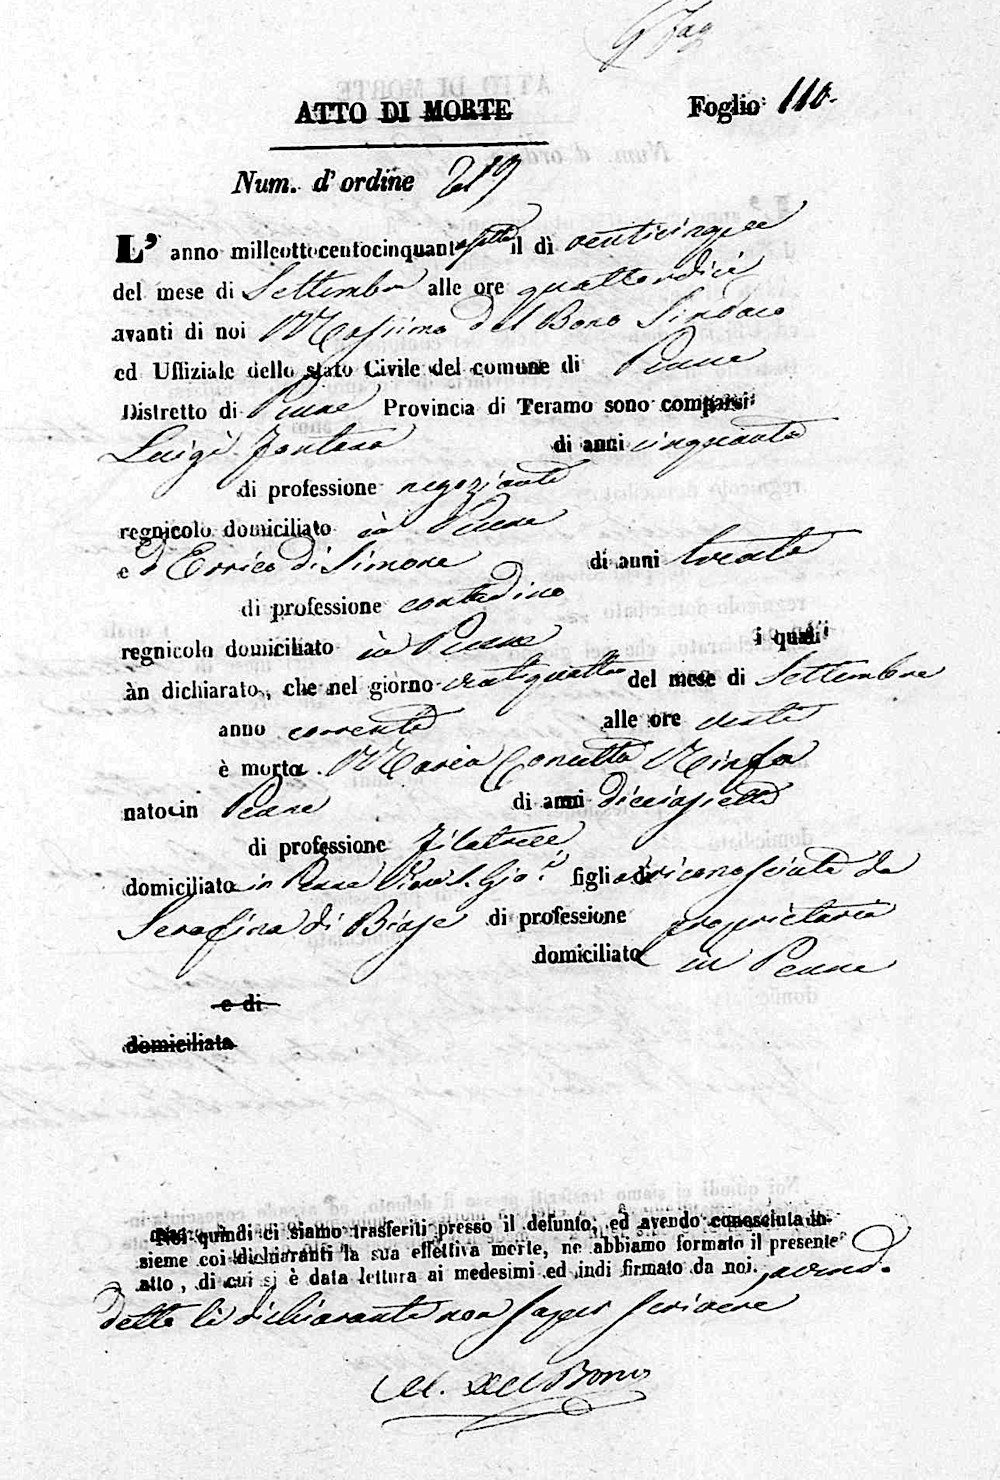 ATTO DI MORTE Foglio 110.
Num. d'ordine 219
L' anno milleottocentocinquantasette il dì venticinque
del mese di Settembre alle ore quattordici
avanti di noi Massimo del Bono Sindaco
ed Uffiziale dello stato Civile del comune di Penne
Distretto di Penne Provincia di Teramo sono comparsi
Luigi Fontana di anni cinquanta
di professione negoziante
regnicolo domiciliato in Penne
e d'Errico di Simone di anni trenta
di professione contadino
regnicolo domiciliato in Penne i quali
àn dichiarato, che nel giorno ventiquattro del mese di Settembre
anno corrente alle ore
è morta Maria Concetta Ninfa
nato in Penne di anni diciasette
di professione filatrice
domiciliata in Penne S. Gio: figlia riconosciuta da
Serafina di Biase di professione proprietaria
domiciliata in Penne
e di
domiciliata
Noi quindi ci siamo trasferiti presso il defunto, ed avendo conosciuta in-
sieme coi dichiaranti la sua effettiva morte, ne abbiamo formato il presente
atto, di cui si è data lettura ai medesimi ed indi firmato da noi, avend.
detto li dichiaranti non saper scrivere
M. Del Bono